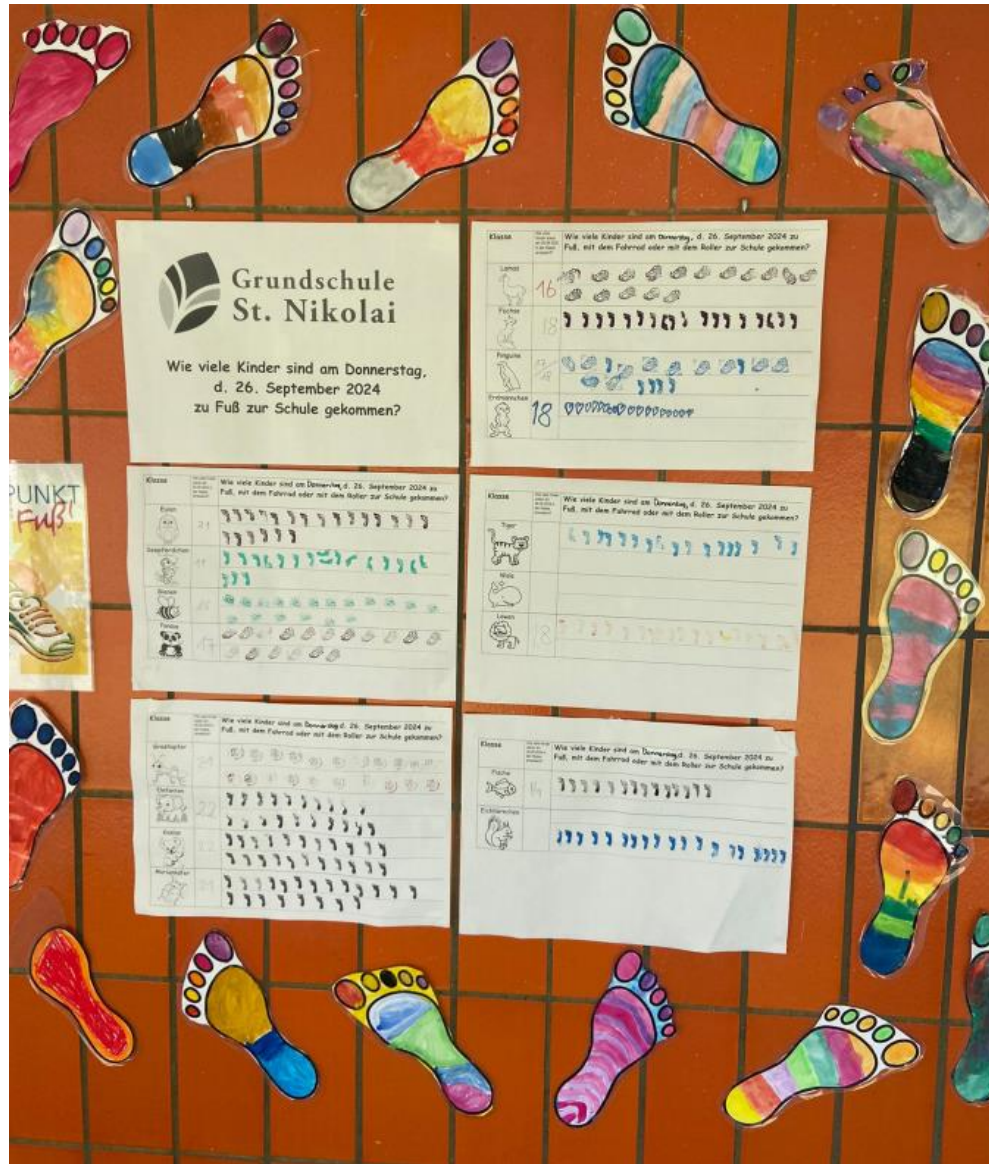 Grundschule
St. Nikolai
Wie viele Kinder sind am Donnerstag,
d. 26. September 2024
zu Fuß zur Schule gekommen?
Klasse
Wie viele Kinder sind am Donnerstag, d. 26. September 2024 zu
Fuß, mit dem Fahrrad oder mit dem Roller zur Schule gekommen?
Lamas
16
Füchse
18
Pinguine
Erdmännchen
18
PUNKT
Fuß!
Klasse
Wie viele Kinder sind am Donnerstag, d. 26. September 2024 zu
Fuß, mit dem Fahrrad oder mit dem Roller zur Schule gekommen?
Eulen
21
Seepferdchen
Bienen
Pandas
17
Klasse
Wie viele Kinder sind am Donnerstag, d. 26. September 2024 zu
Fuß, mit dem Fahrrad oder mit dem Roller zur Schule gekommen?
Tiger
Wale
Löwen
18
Klasse
Wie viele Kinder sind am Donnerstag, d. 26. September 2024 zu
Fuß, mit dem Fahrrad oder mit dem Roller zur Schule gekommen?
Grashüpfer
Elefanten
22
Koalas
22
Marienkäfer
21
Klasse
Wie viele Kinder sind am Donnerstag, d. 26. September 2024 zu
Fuß, mit dem Fahrrad oder mit dem Roller zur Schule gekommen?
Fische
14
Eichhörnchen